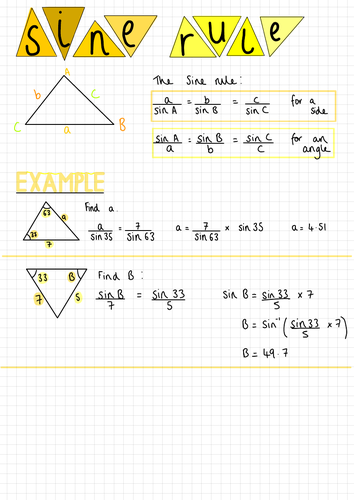 sine rule
a
b
c
C
a
B
The Sine rule:
a/sin A = b/sin B = c/sin C for a side
sin A/a = sin B/b = sin C/C for an angle
EXAMPLE
63
a
35
7
Find a.
a/sin 35 = 7/sin 63
a = 7/sin 63 × sin 35
a = 4.51
33
B
7
5
Find B:
sin B/7 = sin 33/5
sin B = sin 33/5 × 7
B = sin⁻¹ (sin 33/5 × 7)
B = 49.7